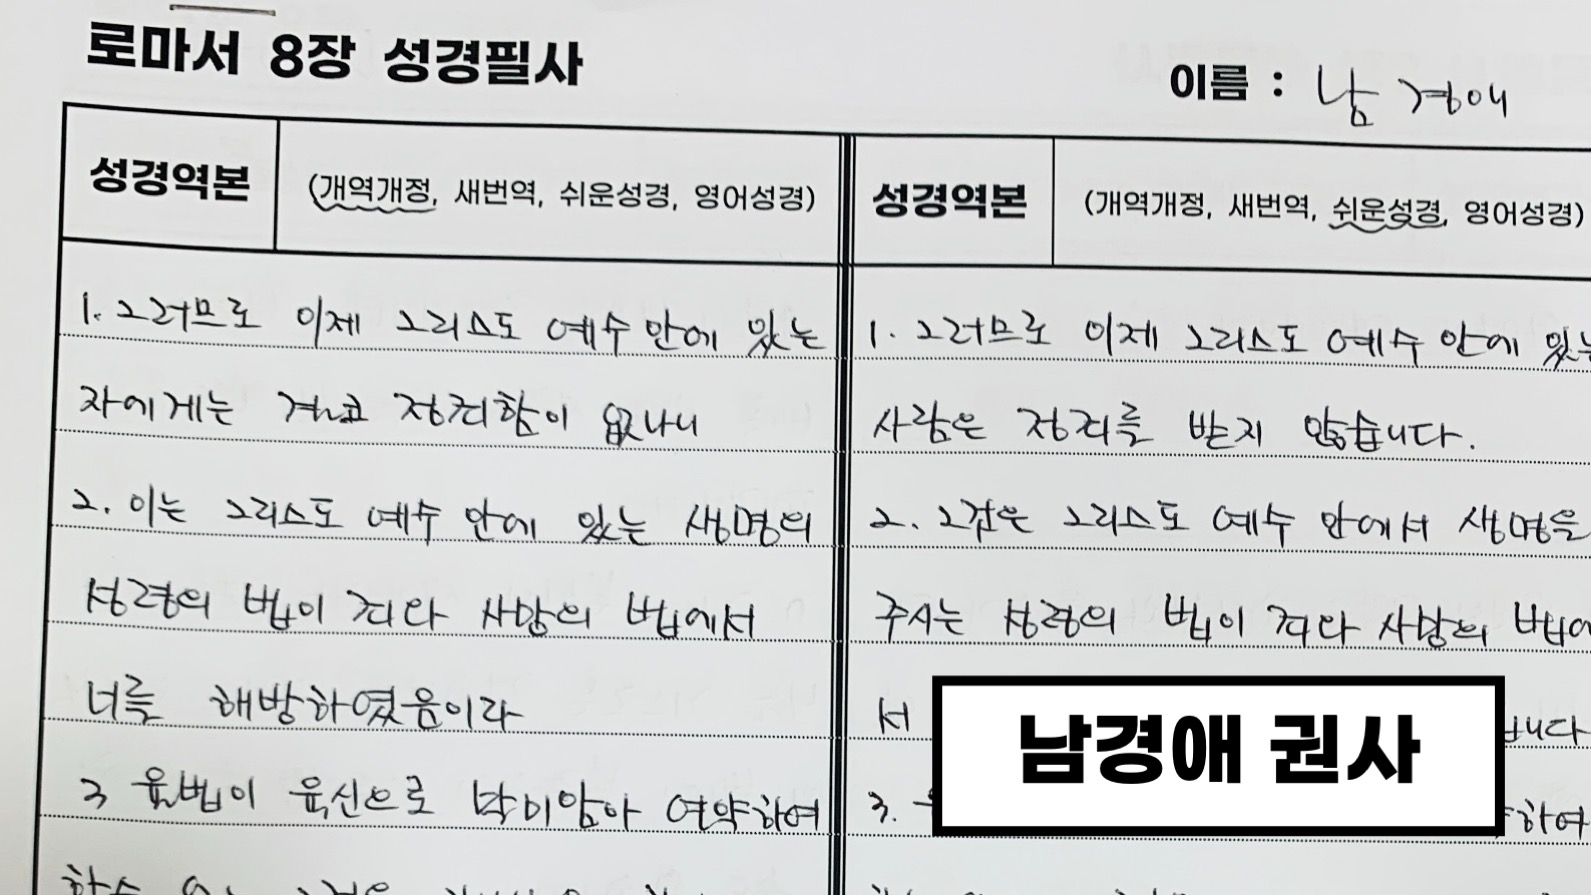 로마서 8장 성경필사
이름 : 남경애
성경역본 (개역개정, 새번역, 쉬운성경, 영어성경)
1. 그러므로 이제 그리스도 예수 안에 있는
자에게는 결코 정죄함이 없나니
2. 이는 그리스도 예수 안에 있는 생명의
성령의 법이 죄와 사망의 법에서
너를 해방하였음이라
3 율법이 육신으로 말미암아 연약하여
성경역본 (개역개정, 새번역, 쉬운성경, 영어성경)
1. 그러므로 이제 그리스도 예수 안에 있는
사람은 정죄를 받지 않습니다.
2. 그것은 그리스도 예수 안에서 생명을
주시는 성령의 법이 죄와 사망의 법에
서
3.
남경애 권사